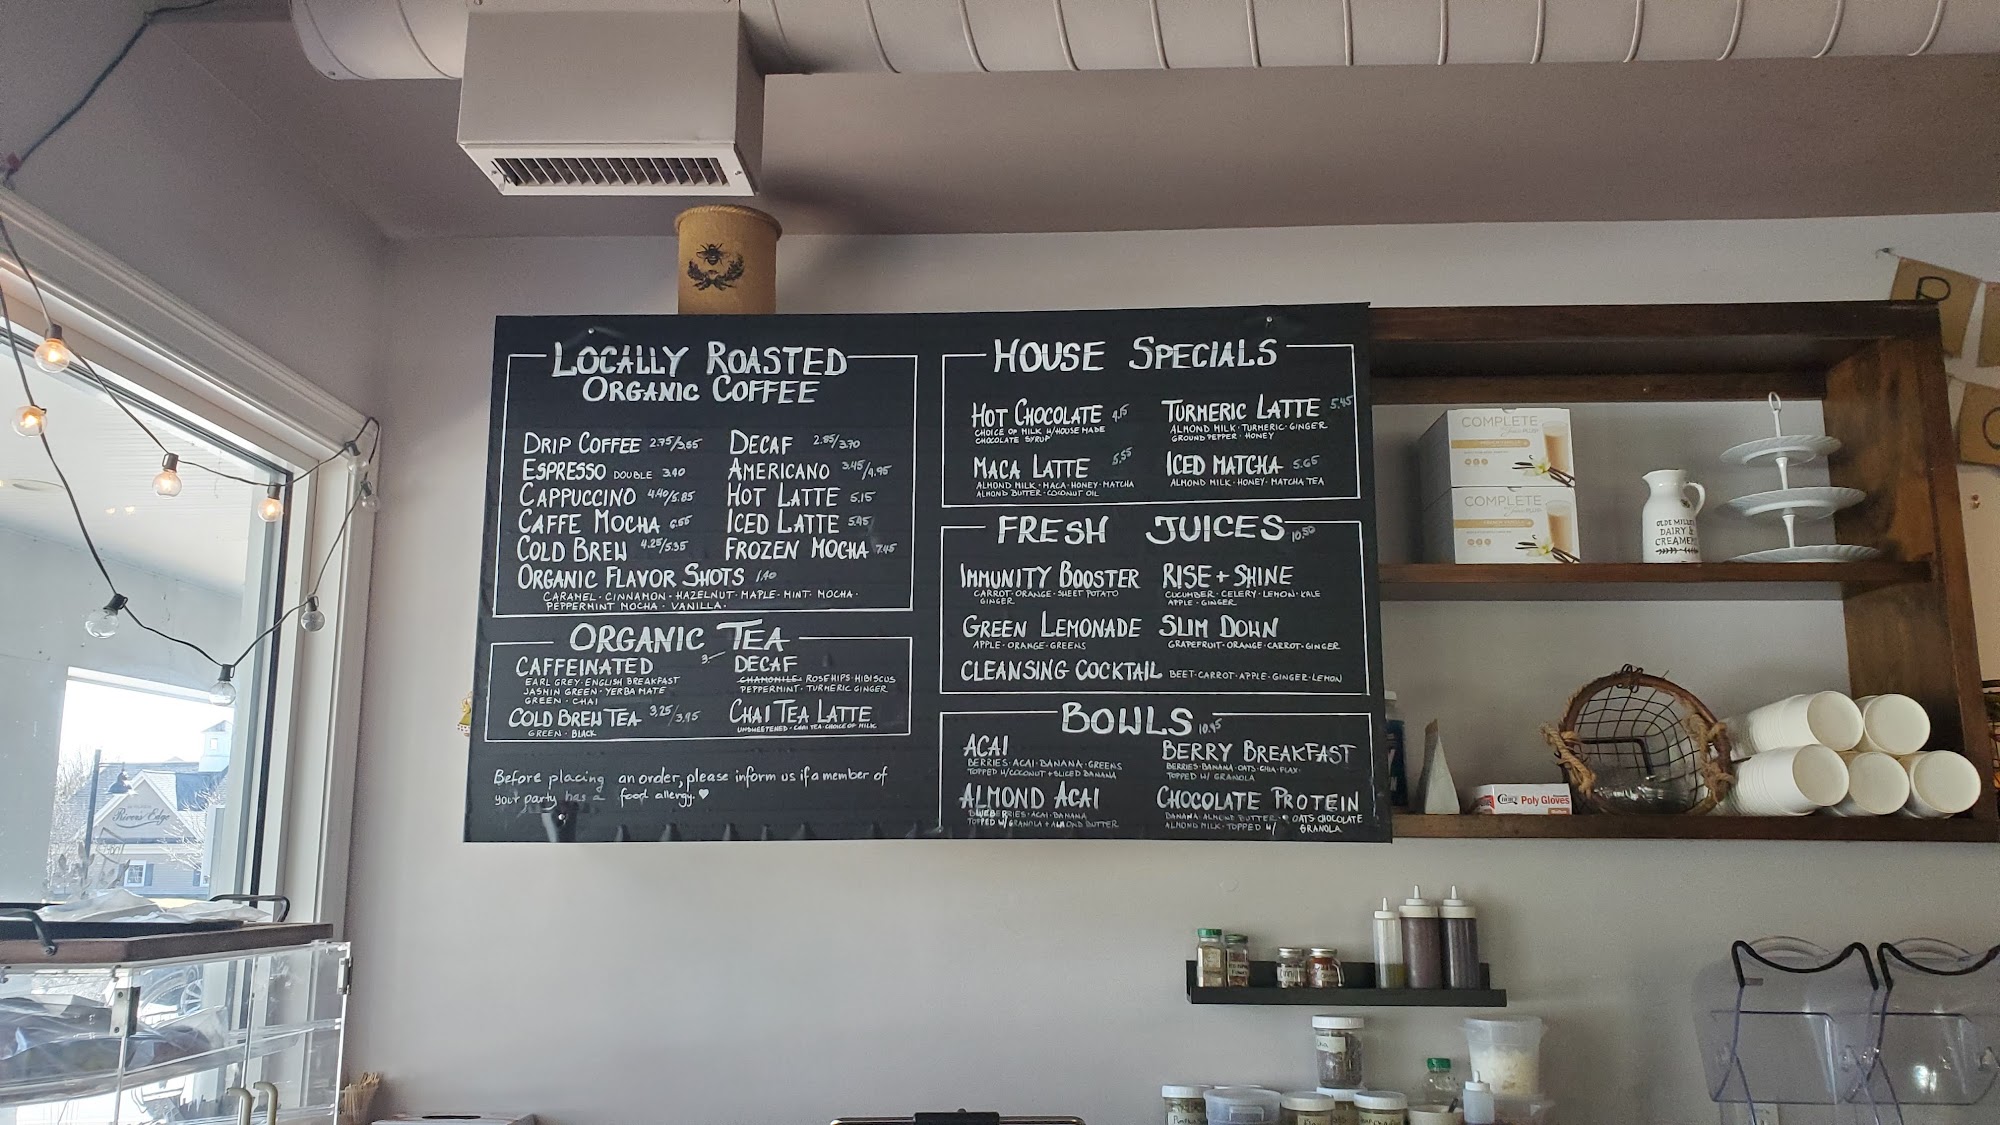 LOCALLY ROASTED
ORGANIC COFFEE
DRIP COFFEE 2.75/3.85
ESPRESSO DOUBLE 3.40
CAPPUCCINO 4.40/5.85
CAFFE MOCHA 6.55
COLD BREW 4.25/5.35
DECAF 2.85/3.70
AMERICANO 3.45/4.95
HOT LATTE 5.15
ICED LATTE 5.45
FROZEN MOCHA 7.45
ORGANIC FLAVOR SHOTS 1.40
CARAMEL · CINNAMON · HAZELNUT · MAPLE · MINT · MOCHA ·
PEPPERMINT MOCHA · VANILLA ·
ORGANIC TEA
CAFFEINATED 3.—
EARL GREY · ENGLISH BREAKFAST
JASMIN GREEN · YERBA MATE
GREEN · CHAI
COLD BREW TEA 3.25/3.95
GREEN · BLACK
DECAF
CHAMOMILE · ROSEHIPS · HIBISCUS
PEPPERMINT · TURMERIC GINGER
CHAI TEA LATTE
UNSWEETENED · CHAI TEA · CHOICE OF MILK
Before placing an order, please inform us if a member of
your party has a food allergy. ♥
HOUSE SPECIALS
HOT CHOCOLATE 4.15
CHOICE OF MILK W/HOUSE MADE
CHOCOLATE SYRUP
MACA LATTE 5.55
ALMOND MILK · MACA · HONEY · MATCHA
ALMOND BUTTER · COCONUT OIL
TURMERIC LATTE 5.45
ALMOND MILK · TURMERIC · GINGER
GROUND PEPPER · HONEY
ICED MATCHA 5.65
ALMOND MILK · HONEY · MATCHA TEA
FRESH JUICES 10.50
IMMUNITY BOOSTER
CARROT · ORANGE · SWEET POTATO
GINGER
RISE + SHINE
CUCUMBER · CELERY · LEMON · KALE
APPLE · GINGER
GREEN LEMONADE
APPLE · ORANGE · GREENS
SLIM DOWN
GRAPEFRUIT · ORANGE · CARROT · GINGER
CLEANSING COCKTAIL BEET · CARROT · APPLE · GINGER · LEMON
BOWLS 10.95
ACAI
BERRIES · ACAI · BANANA · GREENS
TOPPED W/COCONUT + SLICED BANANA
BERRY BREAKFAST
BERRIES · BANANA · OATS · CHIA · FLAX ·
TOPPED W/ GRANOLA
ALMOND ACAI
BLUEBERRIES · ACAI · BANANA
TOPPED W/ GRANOLA + ALMOND BUTTER
CHOCOLATE PROTEIN
BANANA · ALMOND BUTTER · OATS CHOCOLATE
ALMOND MILK · TOPPED W/ GRANOLA
COMPLETE
COMPLETE
OLDE MILL
DAIRY &
CREAMERY
Poly Gloves
River's Edge